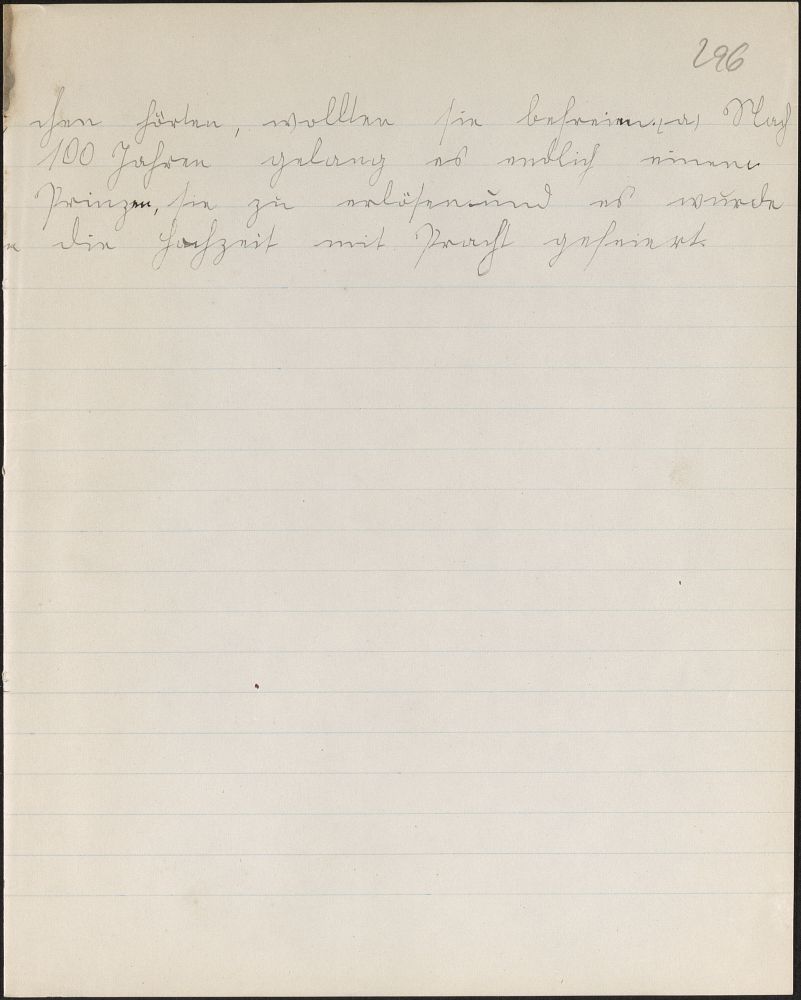 296
chen hörten, wollten sie befreien. (a) Nach
100 Jahren gelang es endlich einem
Prinzen, sie zu erlösen und es wurde
die Hochzeit mit Pracht gefeiert.